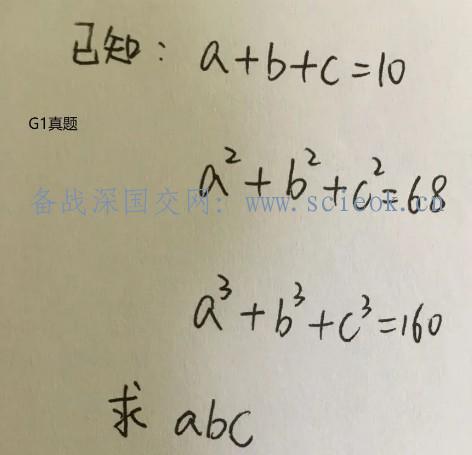 已知: a+b+c=10
G1真题
a²+b²+c²=68
备战深国交网: www.scieok.cn
a³+b³+c³=160
求 abc